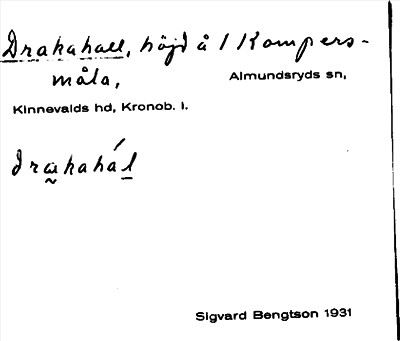 Drakahall, höjd å 1 Kompers-
måla, Almundsryds sn,
Kinnevalds hd, Kronob. l.
drakahál
Sigvard Bengtson 1931